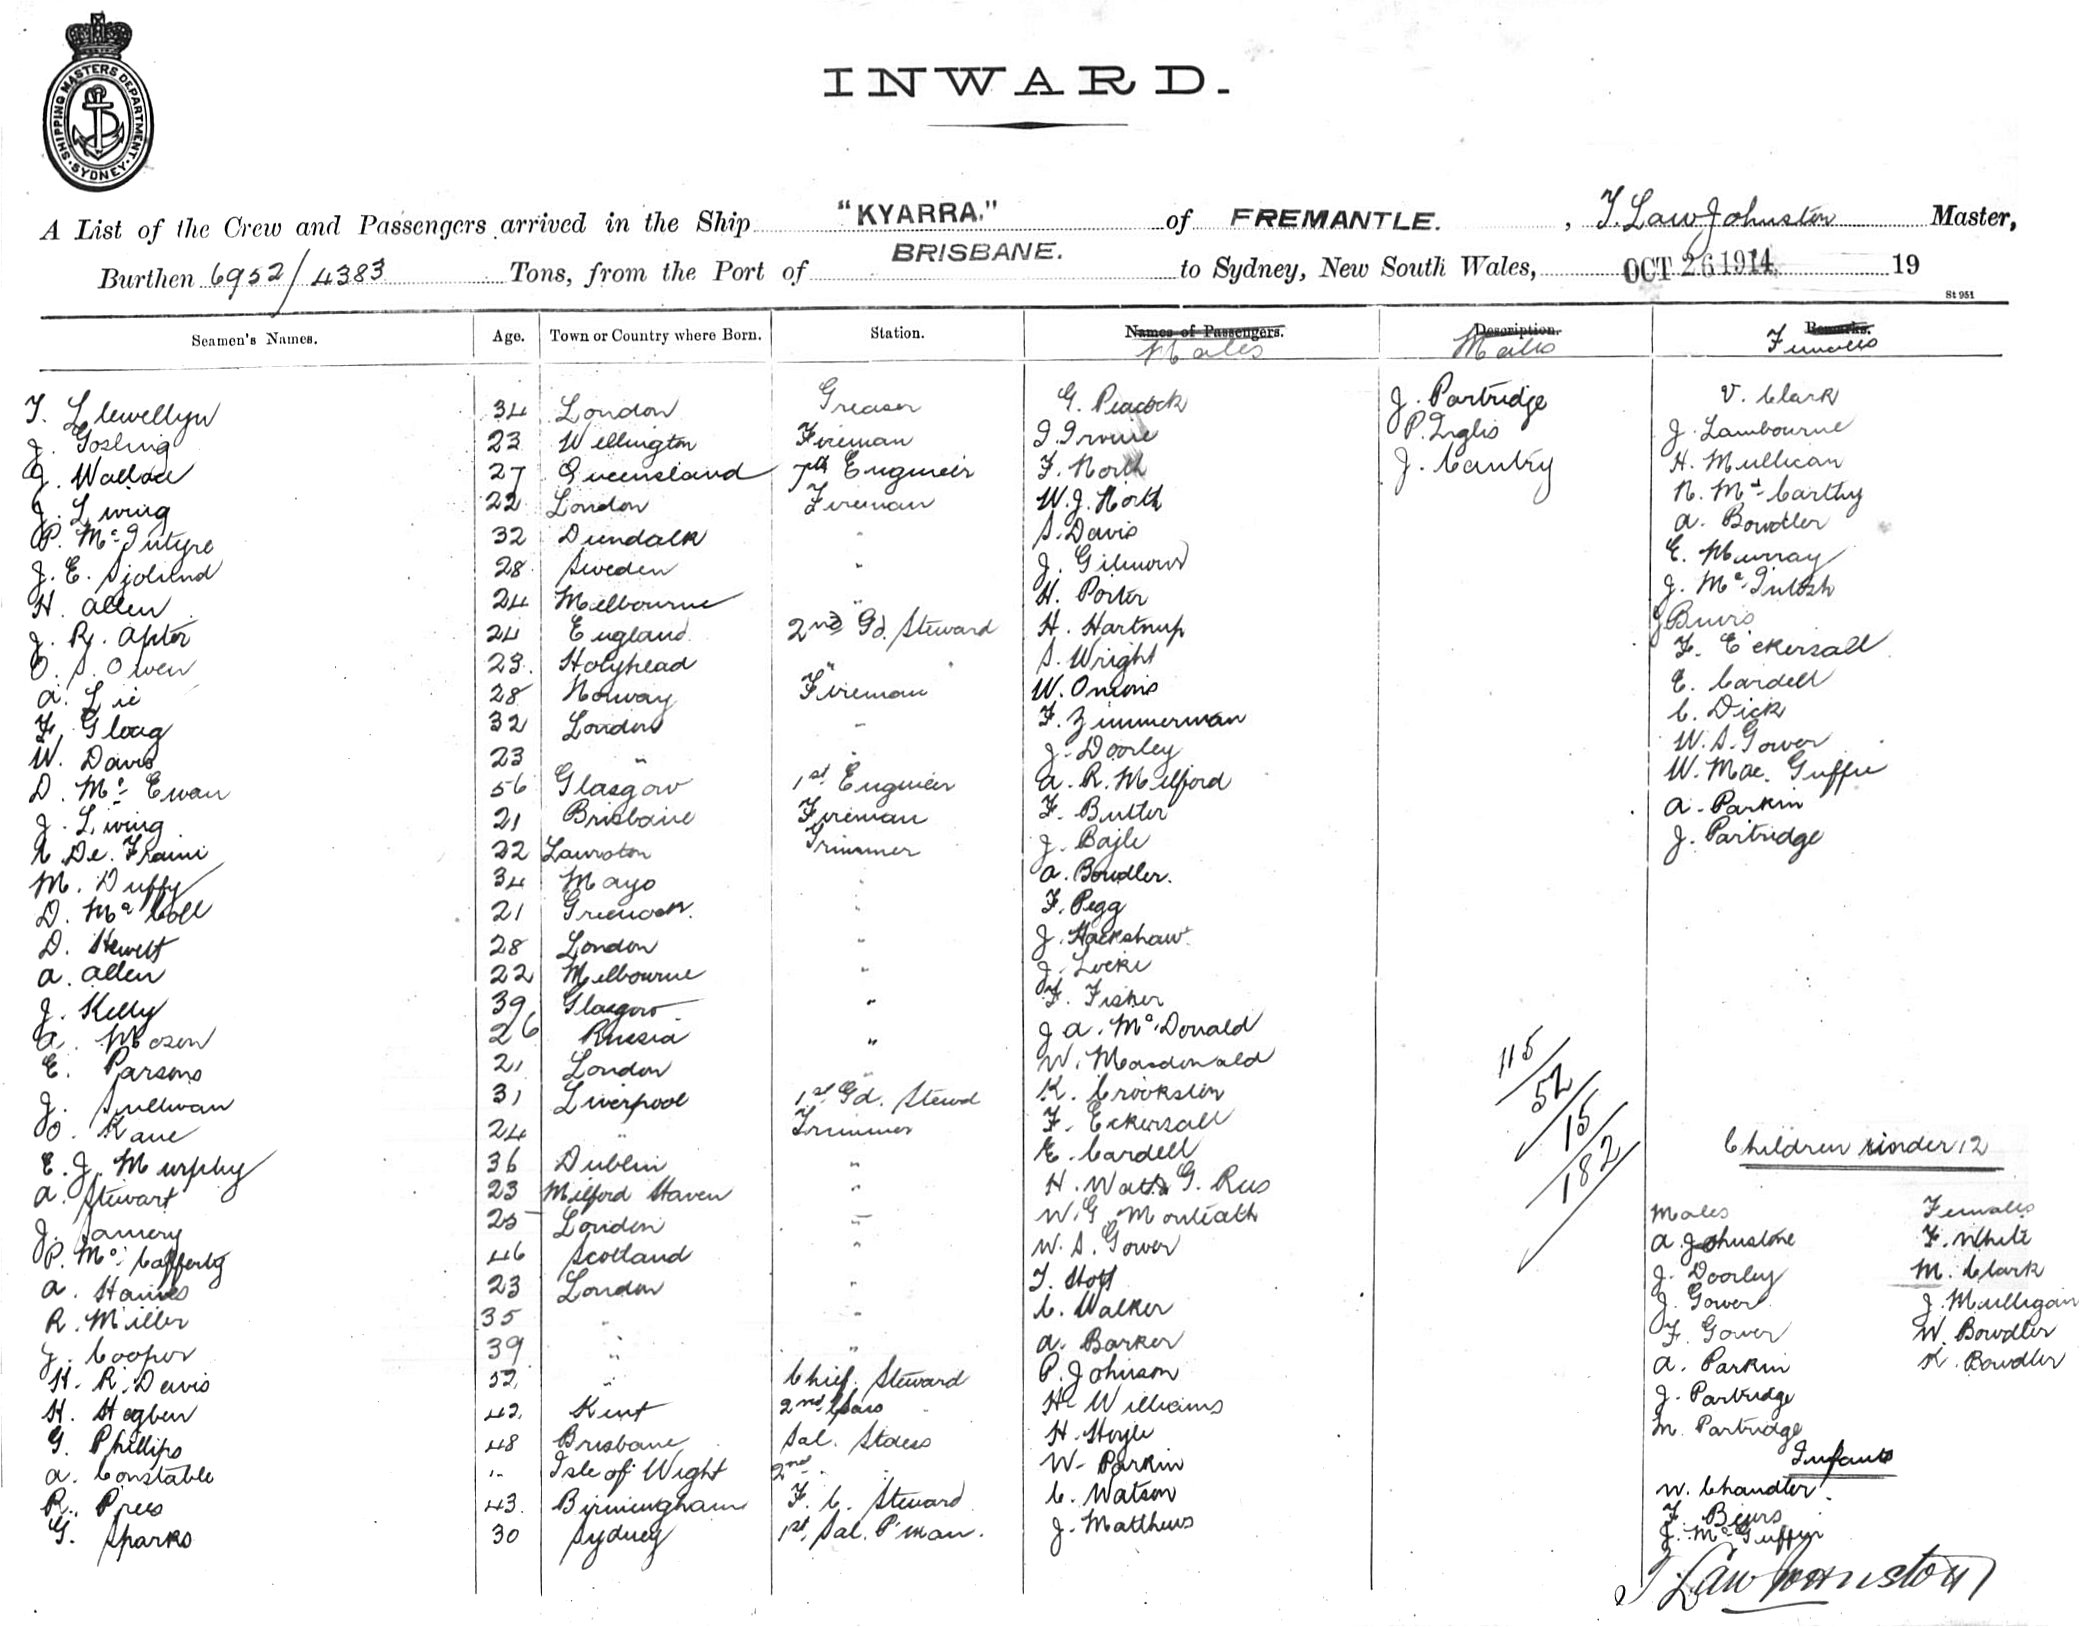 SHIPPING MASTERS DEPARTMENT. SYDNEY
INWARD.
A List of the Crew and Passengers arrived in the Ship "KYARRA." of FREMANTLE. , T. Law Johnston Master,
Burthen 6952/4383 Tons, from the Port of BRISBANE. to Sydney, New South Wales, OCT 26 1914 19
St 951
Seamen's Names. Age. Town or Country where Born. Station. Names of Passengers. Description. Remarks.
Males Males Females
T. Llewellyn 34 London Greaser G. Peacock J. Partridge V. Clark
J. Gosling 23 Wellington Fireman I. Irvine P. Inglis J. Lambourne
J. Wallace 27 Queensland 7th Engineer F. North J. Cantry H. Mullican
J. Ewing 22 London Fireman W. J. North N. McCarthy
P. McIntyre 32 Dundalk " S. Davis A. Bowdler
J. E. Sjolund 28 Sweden " J. Gilmour E. Murray
H. Allen 24 Melbourne " H. Porter J. McIntosh
J. R. Apter 24 England 2nd Gd. Steward H. Hartnup J Buirs
O. S. Owen 23. Holyhead " S. Wright F. Eckersall
A. Lie 28 Norway Fireman W. Onions E. Cardell
F. Gloag 32 London " F. Zimmerman C. Dick
W. Davis 23 " " J. Doorley W. S. Gower
D. McEwan 56 Glasgow 1st Engineer A. R. Milford W. Mac. Guffie
J. Ewing 21 Brisbane Fireman F. Butler A. Parkin
De. 22 Trimmer J. Bajle J. Partridge
M. Duffy 34 Mayo " A. Bowdler.
D. McColl 21 Greenock. " F. Pegg
D. Hewett 28 London " J. Hackshaw
A. Allen 22 Melbourne " J. Locke
J. Kelly 39 Glasgow " F. Fisher
A. Mosen 26 Russia " J A. McDonald
E. Parsons 21 London " W. Macdonald
J. Sullivan 31 Liverpool 1st Gd. Stewd K. Crookston 115/
O. Kane 24 " Trimmer F. Eckersall 52/
E. J. Murphy 36 Dublin " E. Cardell 15/ Children under 12
A. Stewart 23 Milford Haven " H. Watts G. Rees 182/
J. 25 London " W. G. Monteath Males Females
P. McCafferty 46 Scotland " W. S. Gower A. Johnstone F. White
A. Haines 23 London " T. Stott J. Doorley M. Clark
R. Miller 35 " " C. Walker J. Gower J. Mulligan
J. Cooper 39 " " A. Barker F. Gower W. Bowdler
H. R. Davis 52 " Chief. Steward P. Johnson A. Parkin K. Bowdler
H. Hogben 42. Kent 2nd Class " H. Williams J. Partridge
G. Phillips 48 Brisbane Sal. H. Hoyle M. Partridge
A. Constable Isle of Wight 2nd " " W. Parkin Infants
R. Prees 43. Birmingham F. C. Steward C. Watson W. Chandler.
G. Sparks 30 Sydney 1st. Sal. P'man. J. Matthews F. Beurs
J. McGuffin
T Law Johnston